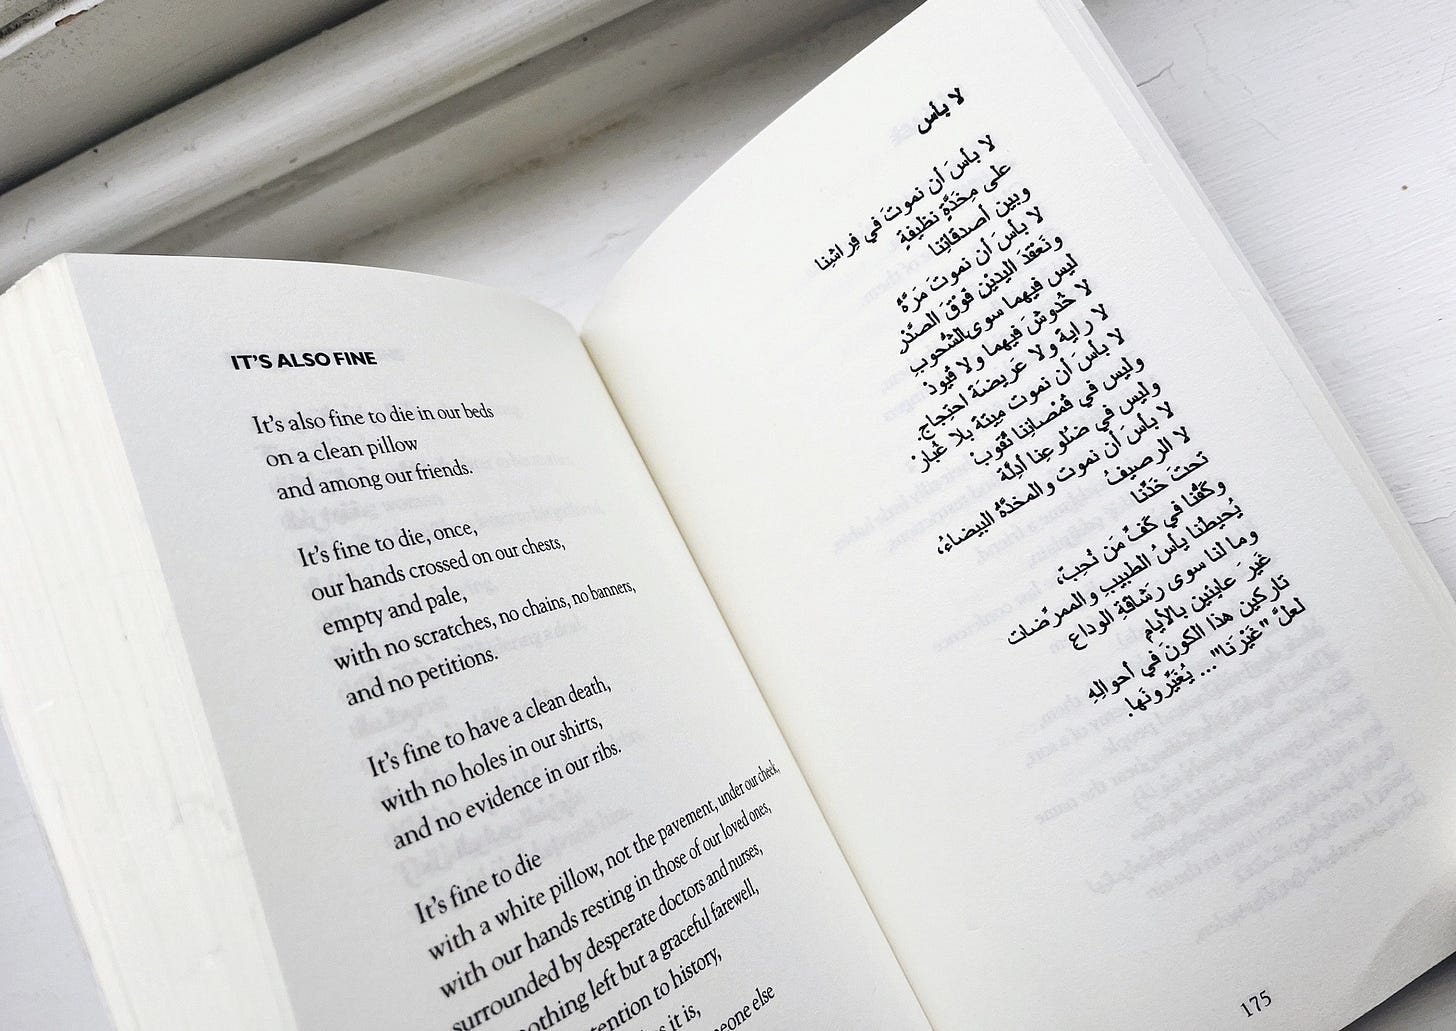 IT'S ALSO FINE
It's also fine to die in our beds
on a clean pillow
and among our friends.
It's fine to die, once,
our hands crossed on our chests,
empty and pale,
with no scratches, no chains, no banners,
and no petitions.
It's fine to have a clean death,
with no holes in our shirts,
and no evidence in our ribs.
It's fine to die
with a white pillow, not the pavement, under our cheek,
with our hands resting in those of our loved ones,
surrounded by desperate doctors and nurses,
nothing left but a graceful farewell,
tention to history,
it is,
eone else
لا بأس
لا بأسَ أن نموتَ في فِراشِنا
على مِخَدَّةٍ نظيفةٍ
وبين أصدقائِنا
لا بأسَ أن نموتَ مَرَّةً
ونَعقدَ اليديْن فوْقَ الصَّدْر
ليس فيهما سوى الشُّحوبِ
لا خُدوشَ فيهما ولا قُيودْ
لا رايةَ ولا عَريضةَ احتِجاج.
لا بأسَ أن نموتَ مِيتةً بلا غُبارْ
وليس في قُمْصانِنا ثُقوبْ
وليس في ضلوعِنا أدِلَّة
لا بأسَ أن نموت والمخدَّةُ البيضاءُ،
لا الرصيفُ
تحتَ خَدِّنا
وكَفُّنا في كَفِّ مَن نُحِبّ،
يُحيطُنا يأسُ الطبيبِ والممرِّضات
وما لَنا سوى رَشاقةِ الوداع
غيرَ عابئين بالأيام
تاركين هذا الكونَ في أحوالِهِ
لعلَّ "غَيْرَنا"... يُغَيِّرونَها.
175